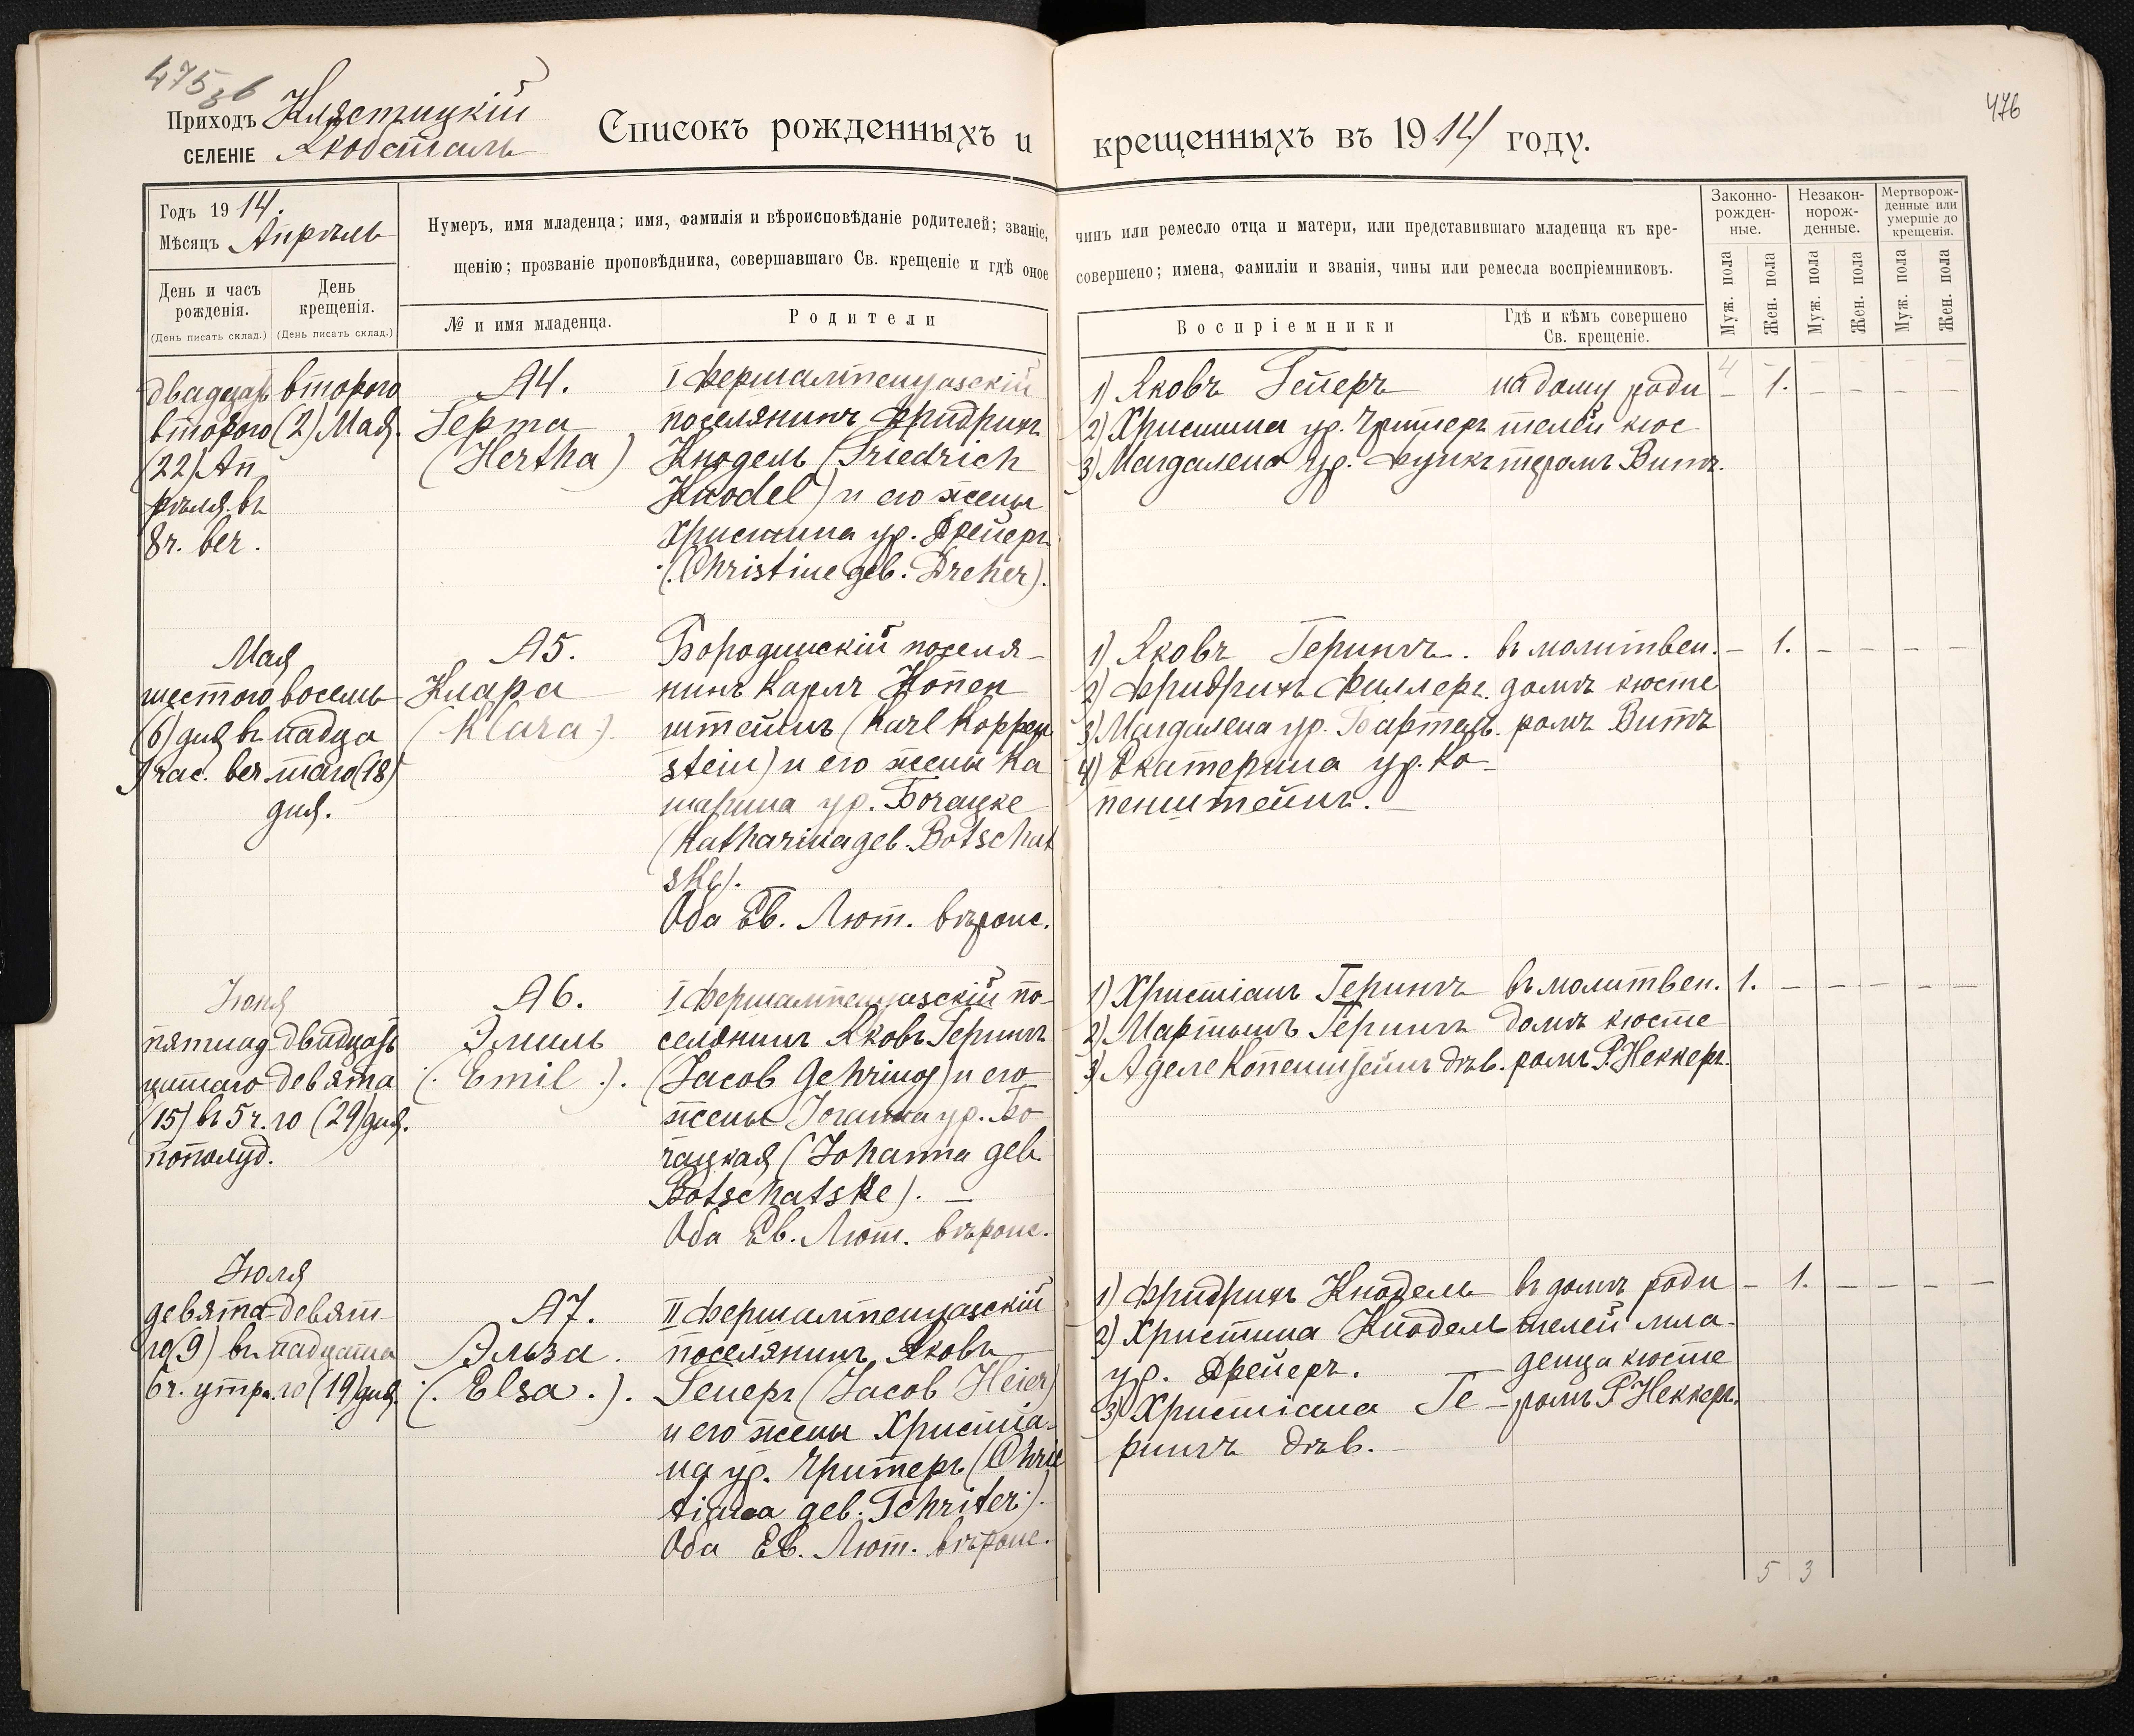 475 об
476
Приходъ Клястицкій
СЕЛЕНІЕ Якобсталь
Списокъ рожденныхъ и крещенныхъ въ 1914 году.
Годъ 1914.
Мѣсяцъ Апрѣль
День и часъ рожденія.
(День писать склад.)
День крещенія.
(День писать склад.)
Нумеръ, имя младенца; имя, фамилія и вѣроисповѣданіе родителей; званіе, чинъ или ремесло отца и матери, или представившаго младенца къ кре-
щенію; прозваніе проповѣдника, совершавшаго Св. крещеніе и гдѣ оное совершено; имена, фамиліи и званія, чины или ремесла воспріемниковъ.
№ и имя младенца.
Родители
Воспріемники
Гдѣ и кѣмъ совершено Св. крещеніе.
Законно-рожден-ные.
Незакон-норож-денные.
Мертворож-денные или умершіе до крещенія.
Муж. пола
Жен. пола
Муж. пола
Жен. пола
Муж. пола
Жен. пола
двадцать
второго
(22) Ап
рѣля въ
8 ч. веч.
второго
(2) Мая.
А4.
Герта
(Hertha)
I Фершампенуазскій
поселянинъ Фридрихъ
Кнодель (Friedrich
Knodel) и его жены
Христина ур. Дрейеръ
(Christine geb. Dreher).
1) Яковъ Гейеръ
2) Христина ур. Чритеръ
3) Магдалена ур. Функъ
на дому роди
телей кюс
теромъ Витъ.
4
– 1. – – – –
Мая
шестого
(6) дня въ
9 час. веч.
восемь
надца
таго (18)
дня.
А5.
Клара
(Klara).
Бородинскій поселя-
нинъ Карлъ Копен
штейнъ (Karl Koppen
stein) и его жены Ка
тарина ур. Бочацке
(Katharina geb. Botschat
ske).
Оба Ев. Лют. вѣроис.
1) Яковъ Герингъ.
2) Фридрихъ Филлеръ.
3) Магдалена ур. Бартель.
4) Екатерина ур. Ко-
пенштейнъ. –
въ молитвен.
домѣ кюсте
ромъ Витъ
– 1. – – – –
Іюня
пятнад
цатаго
(15) въ 5 ч.
пополуд.
двадцать
девята
го (29) дня.
А6.
Эмиль
(. Emil .).
I Фершампенуазскій по-
селянинъ Яковъ Герингъ
(Jacob Gehring) и его
жены Іоганна ур. Бо
чацкая (Johanna geb.
Botschatske). –
Оба Ев. Лют. вѣроис.
1) Христіанъ Герингъ
2) Мартынъ Герингъ
3) Аделе Копенштейнъ дѣв.
въ молитвен.
домѣ кюсте
ромъ Р. Неккеръ.
1. – – – – –
Іюля
девята-
го (9) въ
6 ч. утра.
девят-
надцата
го (19) дня.
А7.
Эльза.
(. Elsa .).
II Фершампенуазскій
поселянинъ Яковъ
Гейеръ (Jacob Heier)
и его жены Христіа-
на ур. Чритеръ (Chris
tiana geb. Tchriter).
Оба Ев. Лют. вѣроис.
1) Фридрихъ Кнодель
2) Христина Кнодель
ур. Дрейеръ.
3) Христіана Ге-
рингъ дѣв. –
въ домѣ роди
телей мла-
денца кюсте
ромъ Р. Неккеръ.
– 1. – – – –
5 3